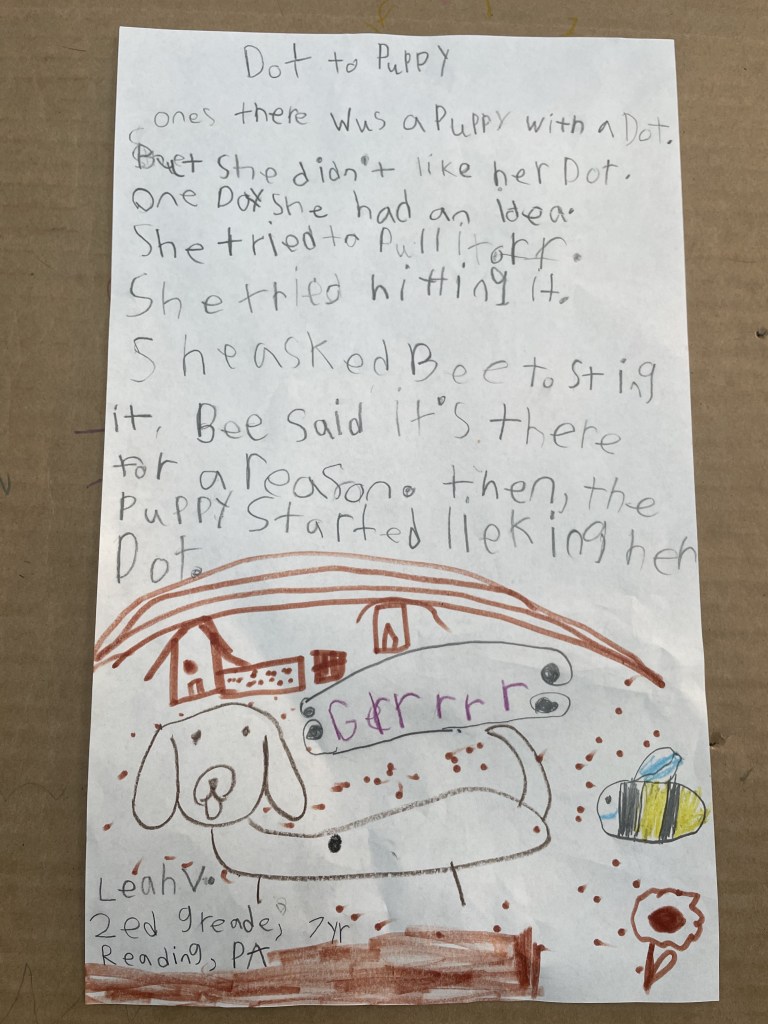 Dot to Puppy
ones there wus a Puppy with a Dot.
Beet She didn't like her Dot.
One Day She had an Idea.
She tried to Pull it off.
She tried hitting it.
She asked Bee to sting
it. Bee said it's there
for a reason. then, the
Puppy started lleking her
Dot.
Grrrrr
Leah V.
2ed greade, 7yr
Reading, PA